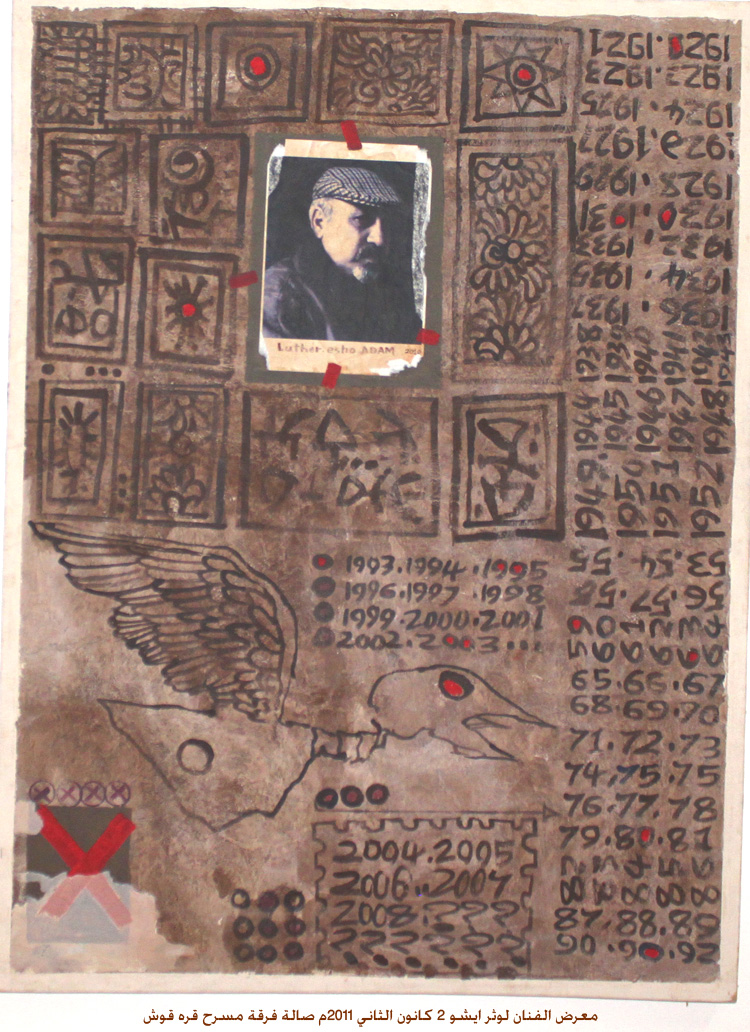 1920.1921
1922.1923
1924.1925
1926.1927
1928.1929
1930.1931
1932.1933
1934.1935
1936.1937
1938 1939 1940 1941
1944 1945 1946 1947 1948
1949. 1950 1951 1952
53.54.55
56.57.58
59 60 61 62 63 64
65.66.67
68.69.70
71.72.73
74.75.75
76.77.78
79.80.81
82 83 84 85 86
87.88.89
90.90.92
Luther.esho ADAM 2010
1993.1994.1995
1996.1997.1998
1999.2000.2001
2002.2003...
2004.2005
2006..2007
2008.???
??????
معرض الفنان لوثر ايشو 2 كانون الثاني 2011م صالة فرقة مسرح قره قوش